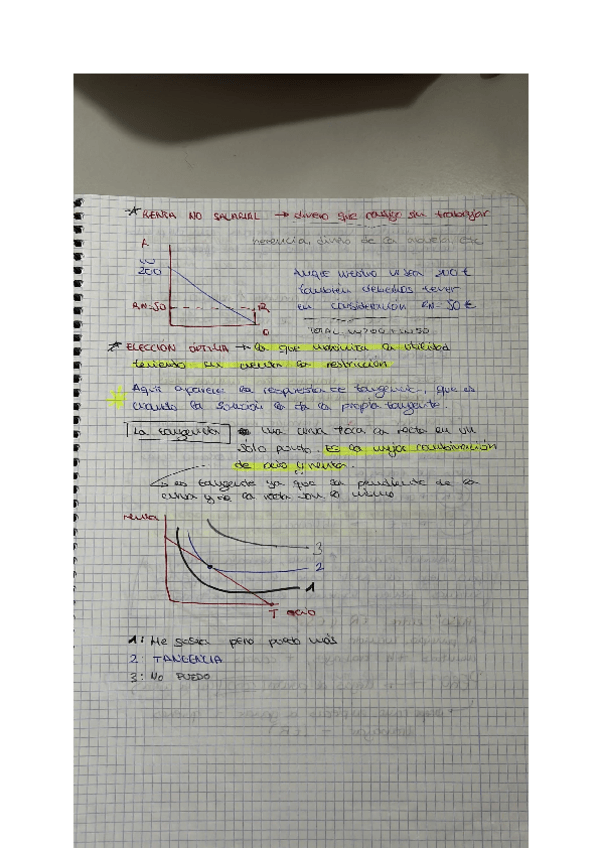 * RENTA NO SALARIAL → dinero que consigo sin trabajar
herencia, dinero de la abuela, etc
W
200
RN=50
O
Aunque nuestro W sea 200 €
también debemos tener
en consideración RN=50 €
TOTAL
* ELECCIÓN ÓPTIMA → la que maximiza la utilidad
teniendo en cuenta la restricción
Aquí aparece la respuesta de tangente, que es
cuando la solución la da la propia tangente.
La tangencia una curva toca la recta en un
sólo punto. Es la mejor combinación
de ocio y renta.
↳ es tangente ya que la pendiente de la
curva y de la recta son la mismo
renta
3
2
1
T ocio
1: Me gusta pero puedo más
2: TANGENCIA
3: NO PUEDO